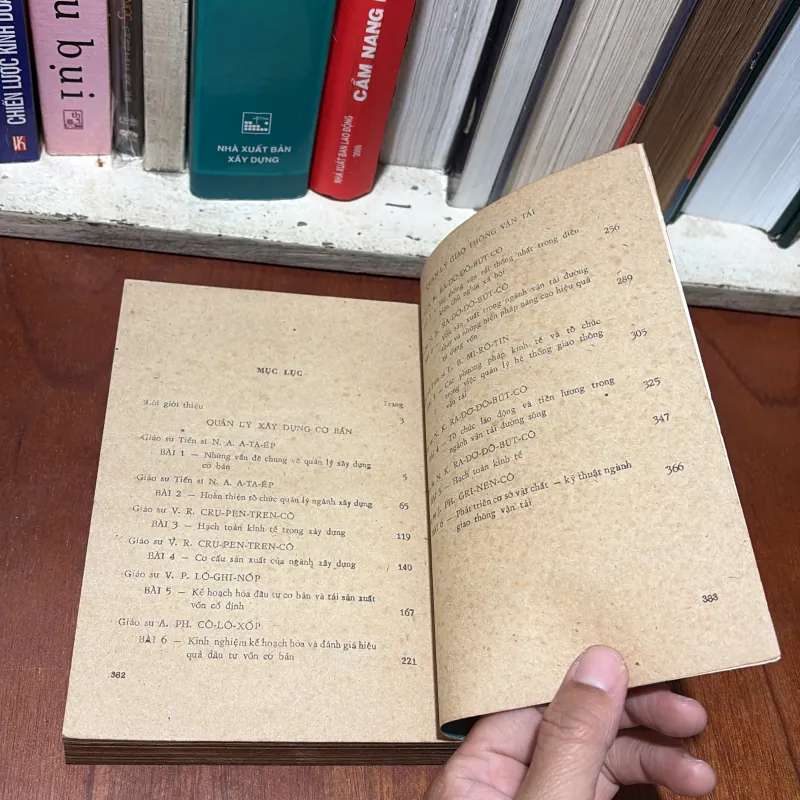 CHIẾN LƯỢC KINH DOA
bụi
NHÀ XUẤT BẢN
XÂY DỰNG
CẨM NANG
NHÀ XUẤT BẢN LAO ĐỘNG
MỤC LỤC
Lời giới thiệu Trang
3
QUẢN LÝ XÂY DỰNG CƠ BẢN
Giáo sư Tiến sĩ N. A. A-TA-ÉP
BÀI 1 — Những vấn đề chung về quản lý xây dựng
cơ bản 5
Giáo sư Tiến sĩ N. A. A-TA-ÉP
BÀI 2 — Hoàn thiện tổ chức quản lý ngành xây dựng 65
Giáo sư V. R. CRU-PEN-TREN-CÔ
BÀI 3 — Hạch toán kinh tế trong xây dựng 119
Giáo sư V. R. CRU-PEN-TREN-CÔ
BÀI 4 — Cơ cấu sản xuất của ngành xây dựng 140
Giáo sư V. P. LÔ-GHI-NỐP
BÀI 5 — Kế hoạch hóa đầu tư cơ bản và tái sản xuất
vốn cố định 167
Giáo sư A. PH. CÔ-LÔ-XỐP
BÀI 6 — Kinh nghiệm kế hoạch hóa và đánh giá hiệu
quả đầu tư vốn cơ bản 221
362
LÝ GIAO THÔNG VẬN TẢI
K. RA-DƠ-ĐÔ-BÚT-CÔ
Hệ thống vận tải thống nhất trong điều 256
chủ nghĩa xã hội
RA-DƠ-ĐÔ-BÚT-CÔ
sản xuất trong ngành vận tải đường
và những biện pháp nâng cao hiệu quả 289
dụng vốn
B. MI-RÔ-TIN
Các phương pháp kinh tế và tổ chức
trong việc quản lý hệ thống giao thông 305
vận tải
N. K. RA-DƠ-ĐÔ-BÚT-CÔ
4 — Tổ chức lao động và tiền lương trong 325
ngành vận tải đường sông
N. K. RA-DƠ-ĐÔ-BÚT-CÔ 347
5 — Hạch toán kinh tế
PH. GRI-NEN-CÔ
6 — Phát triển cơ sở vật chất — kỹ thuật ngành 366
giao thông vận tải
383